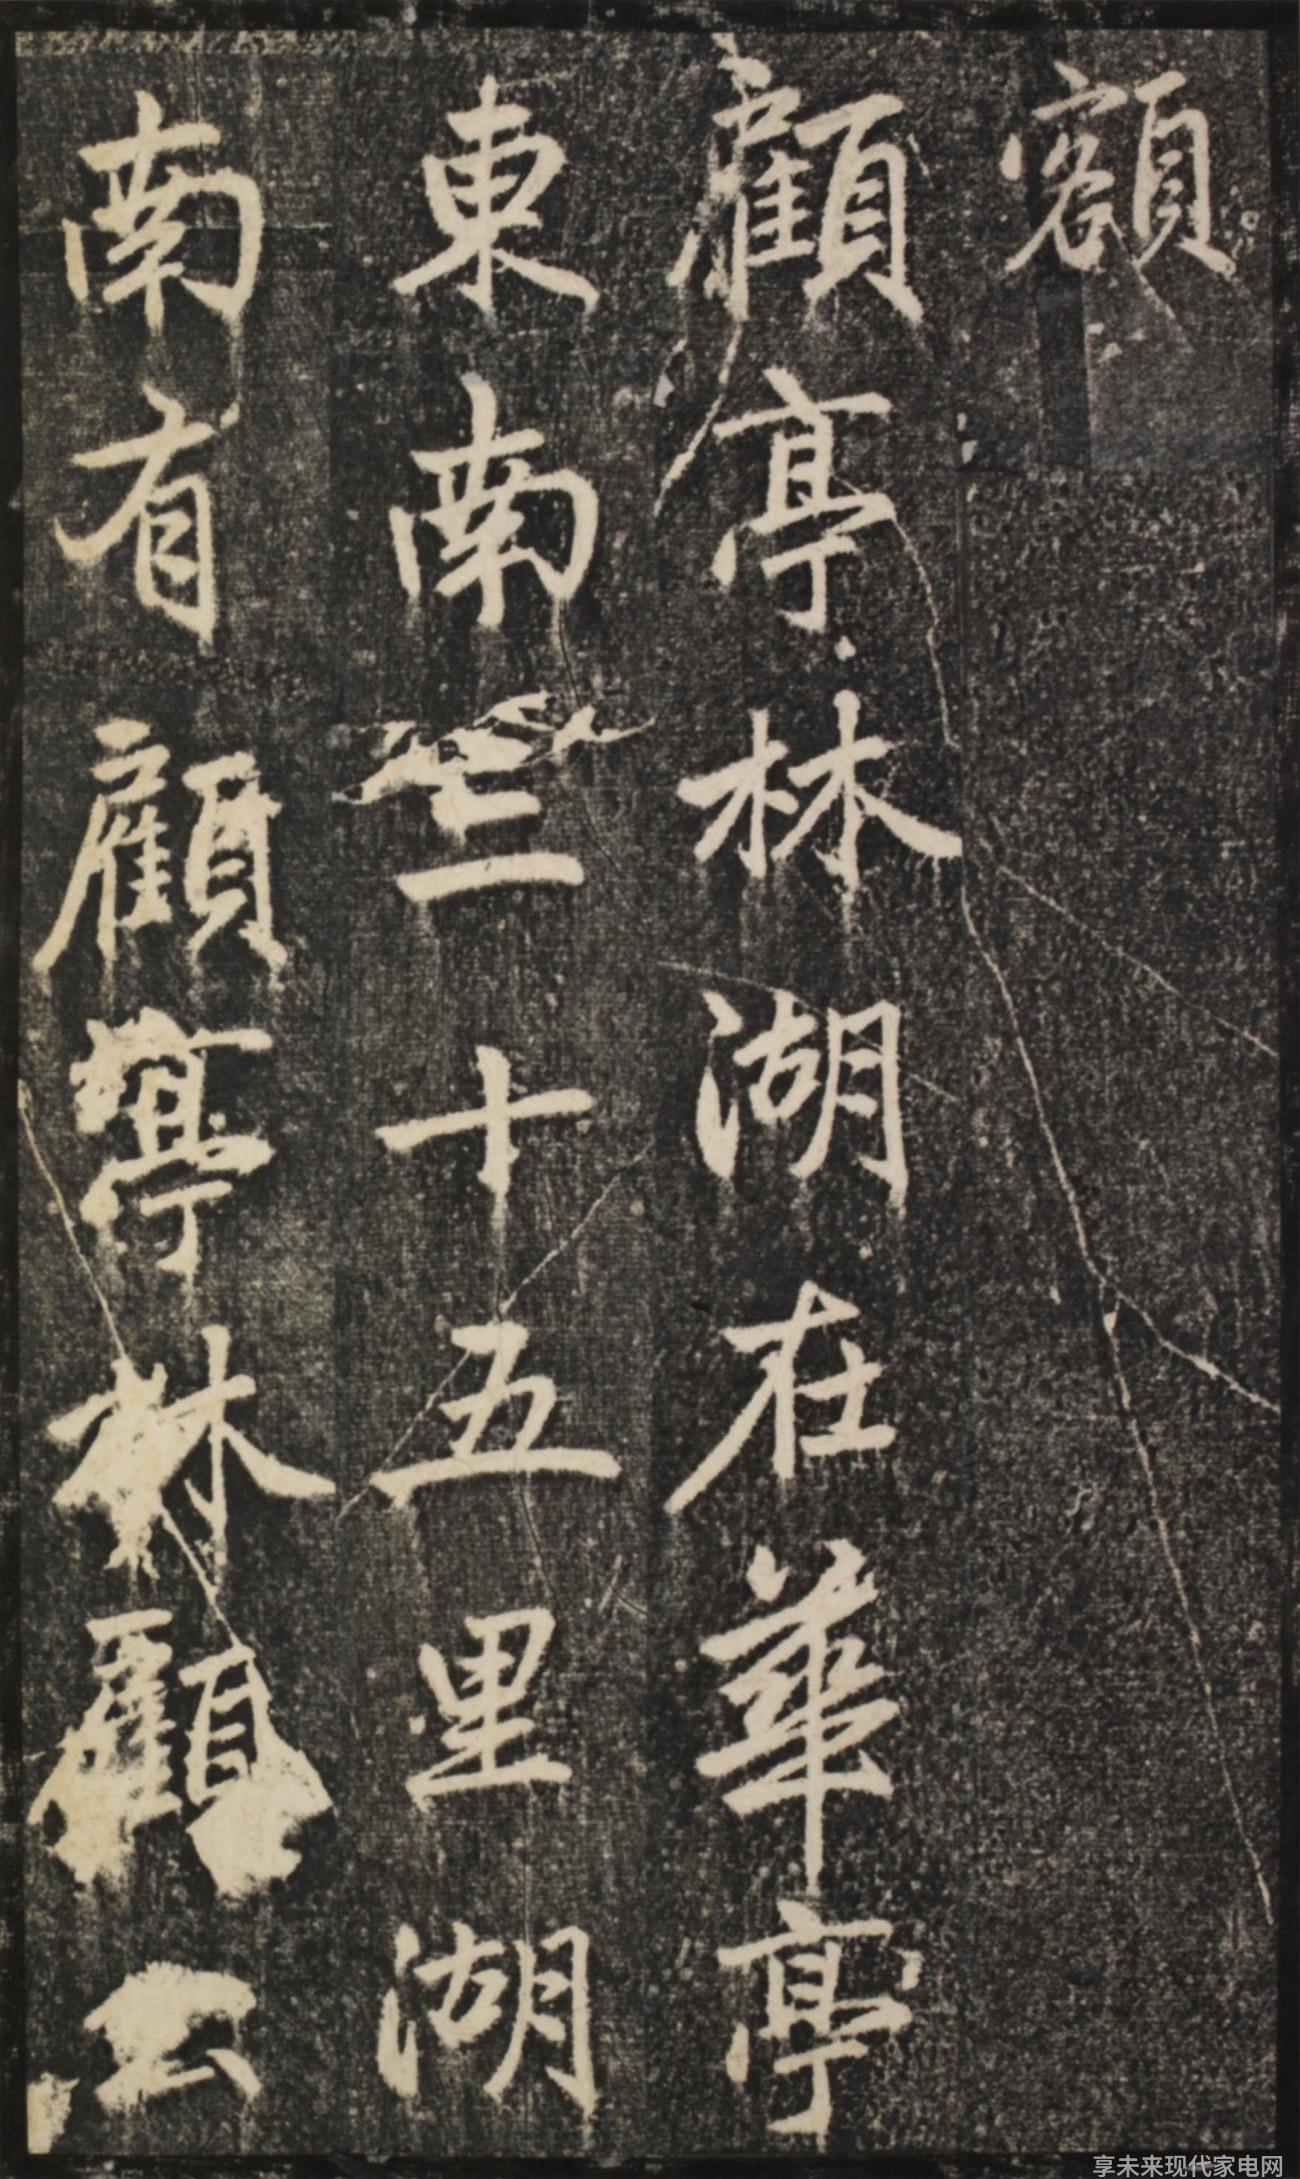 額
顧亭林湖在華亭
東南三十五里湖
南有顧亭林顧公
享未来现代家电网